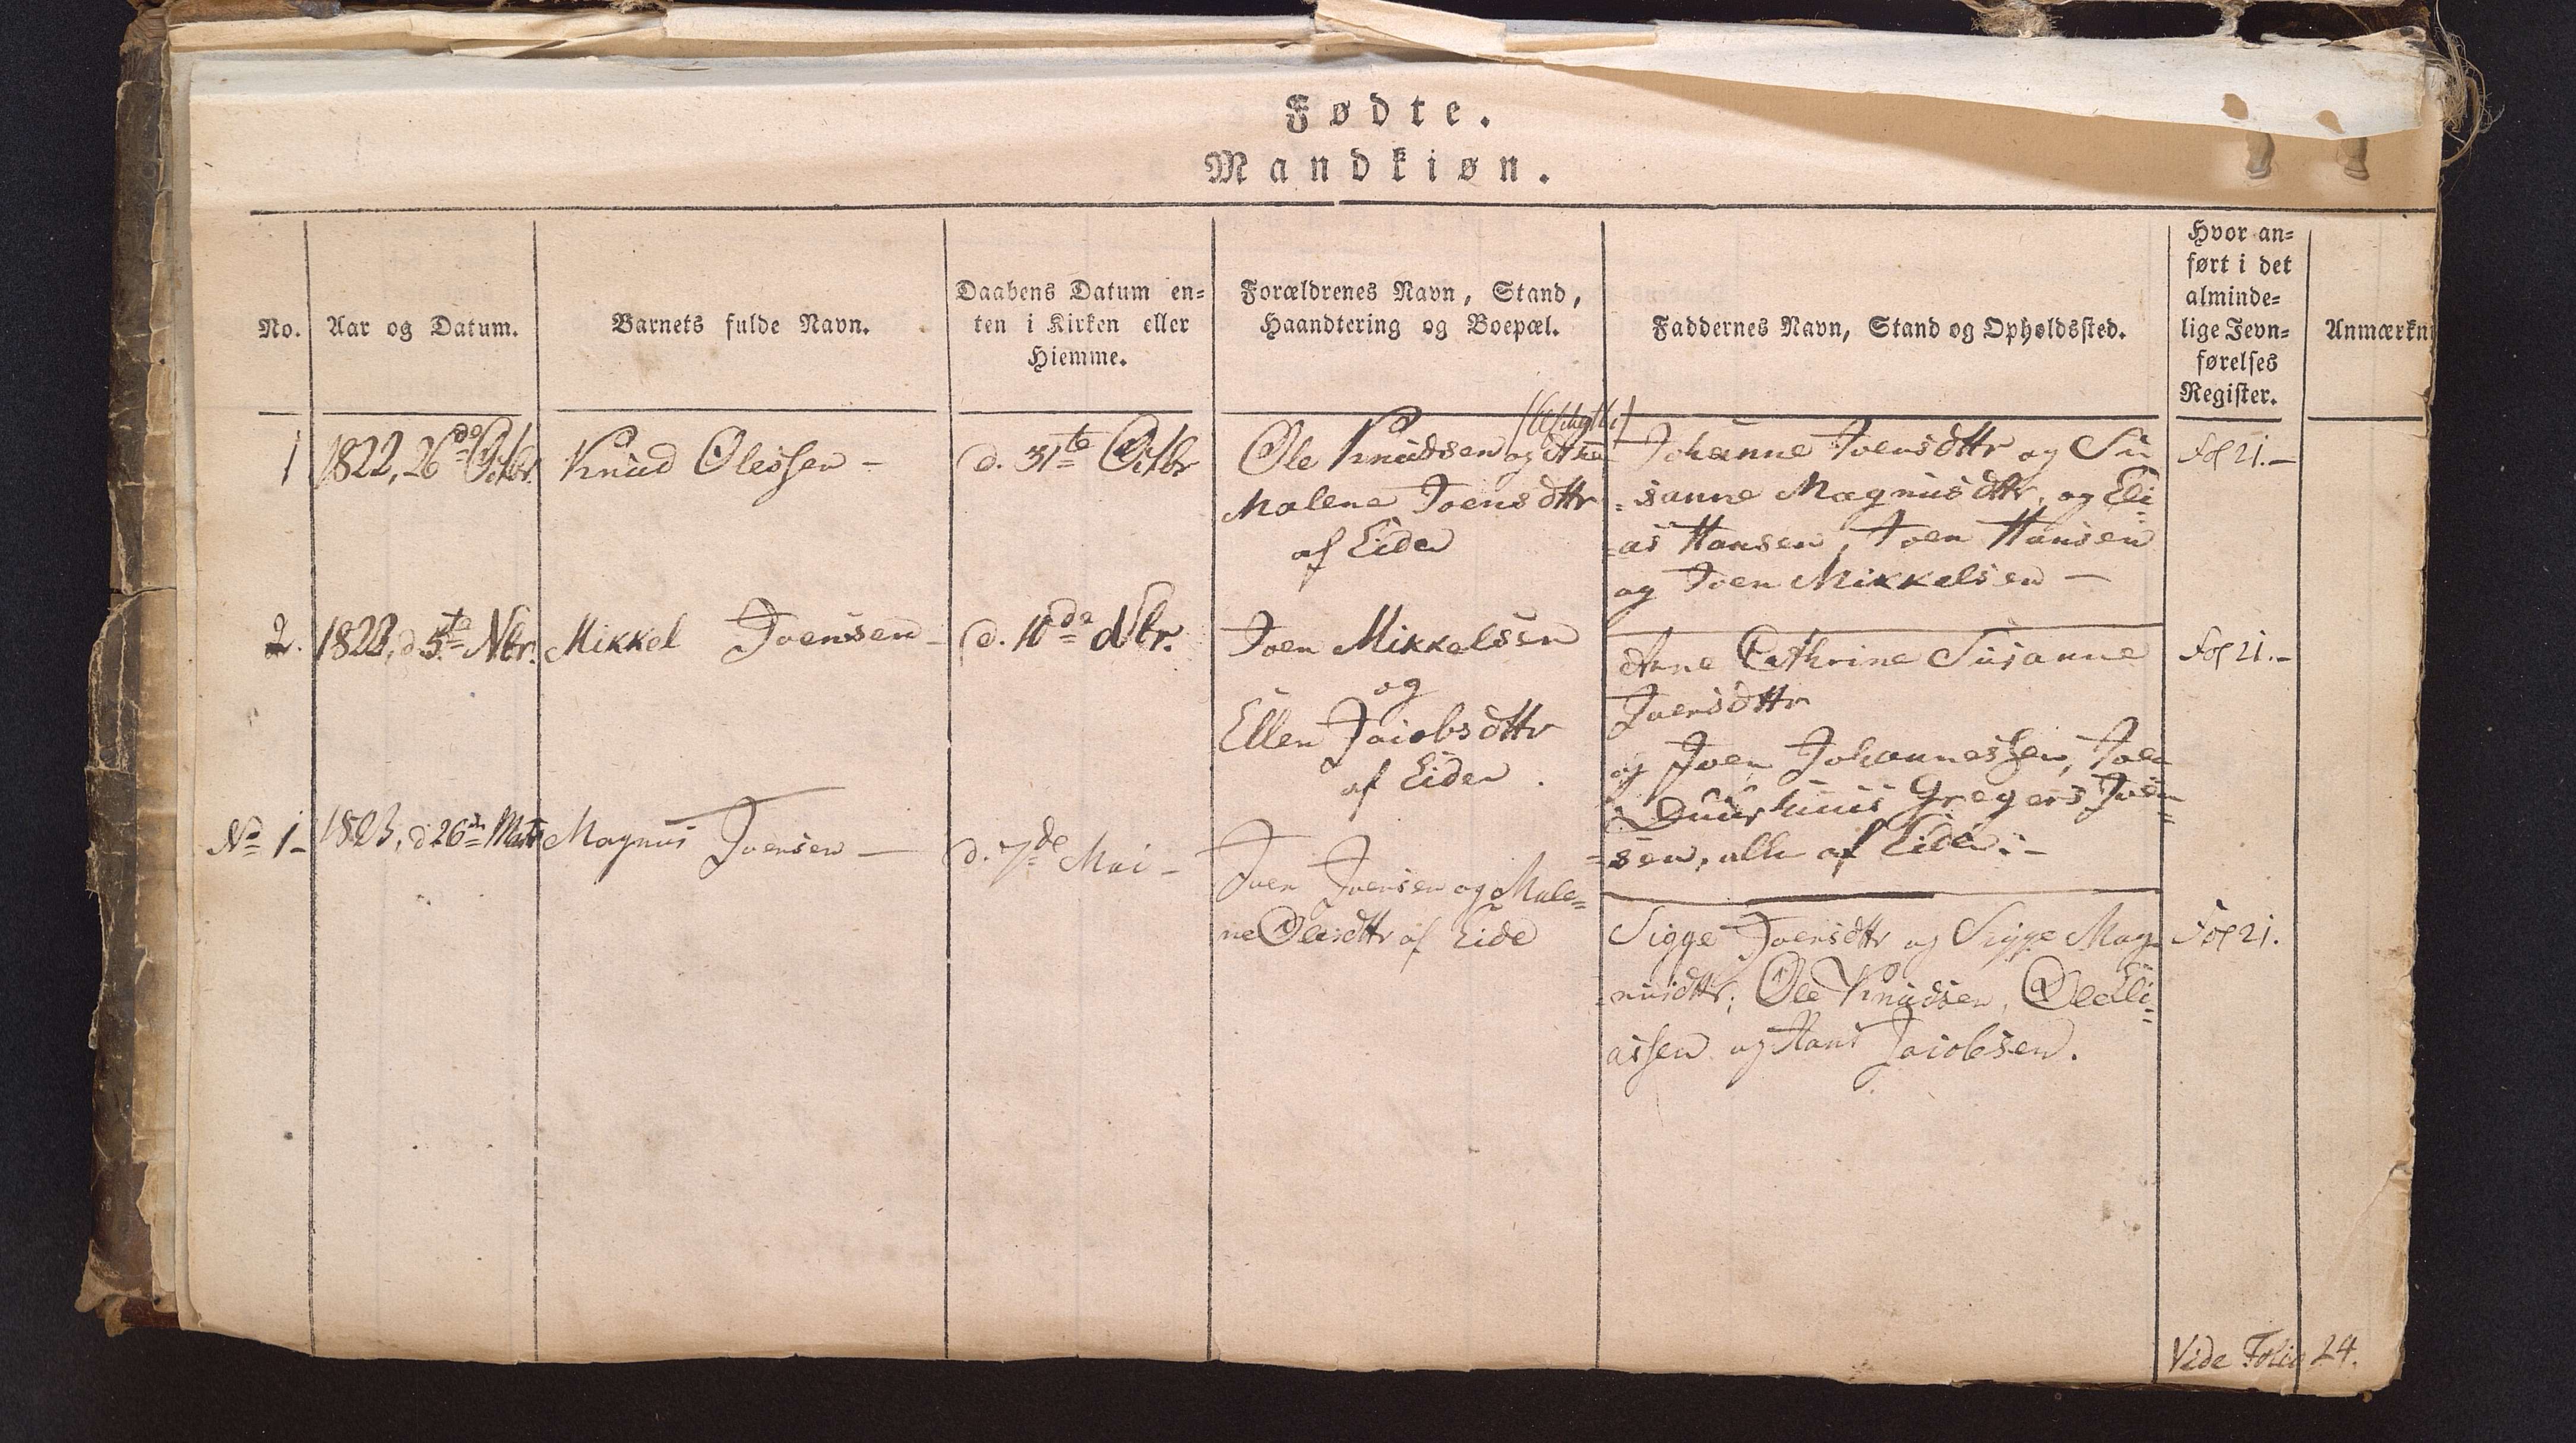 Fødte.
Mandkiøn.
No.
Aar og Datum.
Barnets fulde Navn.
Daabens Datum en-
ten i Kirken eller
Hiemme.
Forældrenes Navn, Stand,
Haandtering og Boepæl.
Faddernes Navn, Stand og Opholdssted.
Hvor an-
ført i det
alminde-
lige Jevn-
førelses
Register.
Anmærkn
1
1822, 26de Octbr.
Knud Olessen -
d. 31te Octbr
Ole Knudsen og
Malene Joensdttr
af Eide
Johanne Joensdttr og Su
=sanne Magnusdttr, og Eli=
=as Hansen, Joen Hansen
og Joen Mikkelsen -
Fol 21.-
2.
1822, d. 5te Nbr.
Mikkel Joensen -
d. 10de Nbr.
Joen Mikkelsen
og
Ellen Jacobsdttr
af Eide.
Anne Cathrine Susanne
Joensdttr
og Joen Johannessen, Joen
i Duurhuus Gregers Joen=
=sen, alle af Eide.-
Fol 21.-
No 1-
1823, d 26de
Magnus Joensen -
d. 7de Mai -
Joen Joensen og Male=
ne Olesdttr af Eide
Sigge Joensdttr og Sigge Mag
=nusdttr; Ole Knudsen, Ole Eli=
assen og Hans Jacobsen.
Fol 21.
Vide Folio 24.